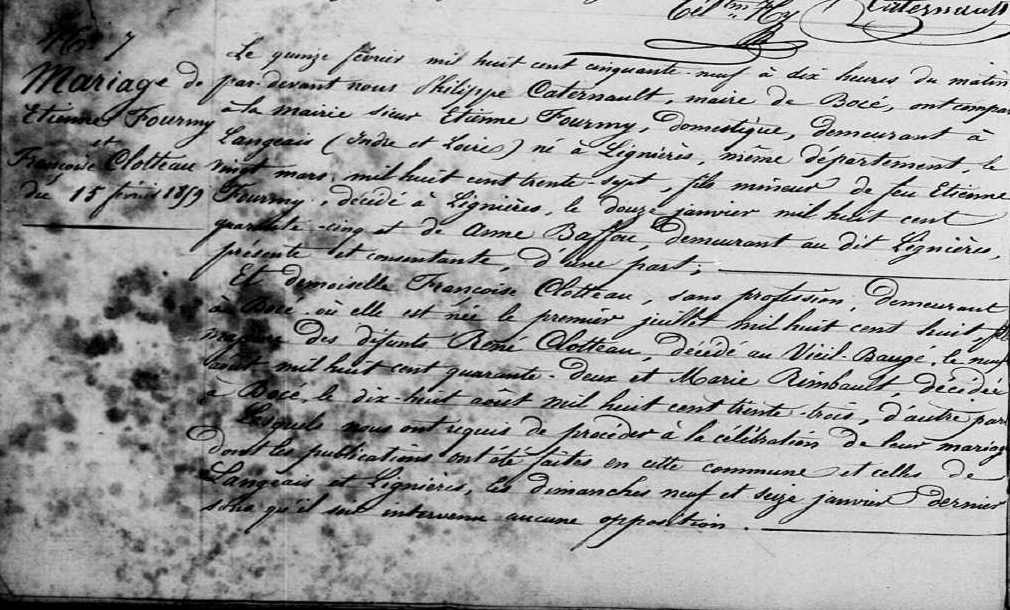 Caternault
N° 7
Mariage de
Etienne Fourmy
et
Françoise Clotteau
du 15 février 1859
Le quinze février mil huit cent cinquante-neuf à dix heures du matin
par-devant nous Philippe Caternault, maire de Bocé, ont compar
à la mairie sieur Etienne Fourmy, domestique, demeurant à
Langeais (Indre et Loire) né à Lignières, même département, le
vingt mars, mil huit cent trente-sept, fils mineur de feu Etienne
Fourmy, décédé à Lignières, le douze janvier mil huit cent
quarante-cinq et de Anne Baffou, demeurant au dit Lignières,
présente et consentante, d'une part;
Et demoiselle Françoise Clotteau, sans profession, demeurant
à Bocé où elle est née le premier juillet mil huit cent huit, fille
majeure des défunts René Clotteau, décédé au Vieil-Baugé, le neuf
août mil huit cent quarante-deux et Marie Rimbault, décédée
à Bocé, le dix-huit août mil huit cent trente-trois, d'autre part
Lesquels nous ont requis de procéder à la célébration de leur mariage
dont les publications ont été faites en cette commune et celles de
Langeais et Lignières, les dimanches neuf et seize janvier dernier
sans qu'il soit intervenu aucune opposition.